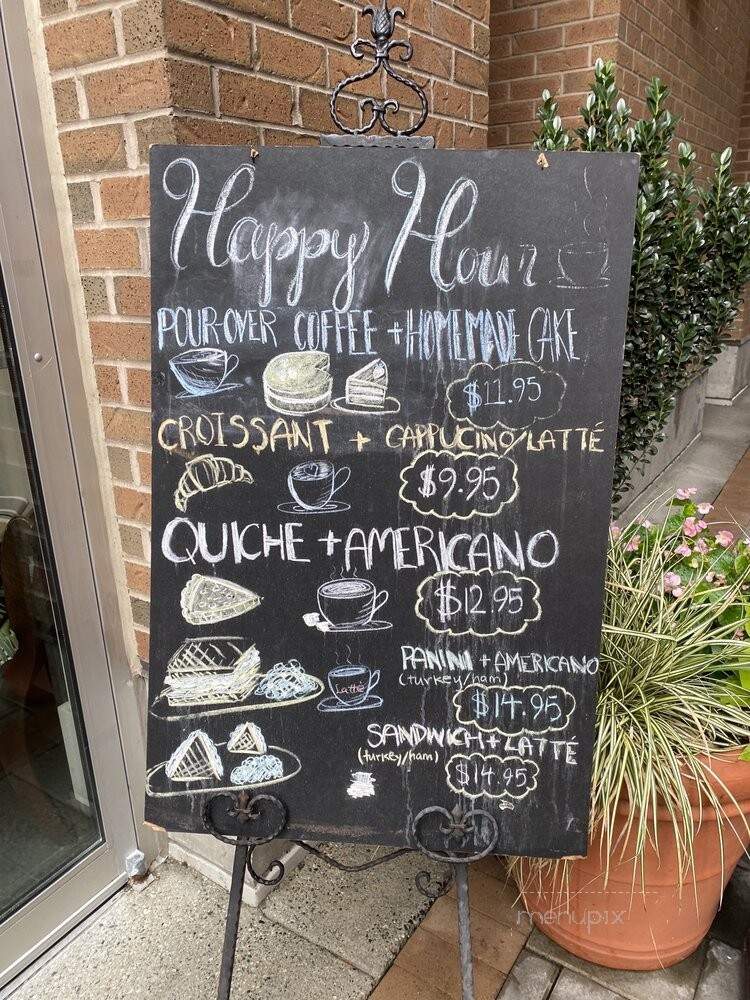 Happy Hour
POUR-OVER COFFEE + HOMEMADE CAKE
$11.95
CROISSANT + CAPPUCINO/LATTÉ
$9.95
QUICHE + AMERICANO
$12.95
PANINI + AMERICANO
(turkey/ham)
Latté
$14.95
SANDWICH + LATTÉ
(turkey/ham)
$14.95
menupix